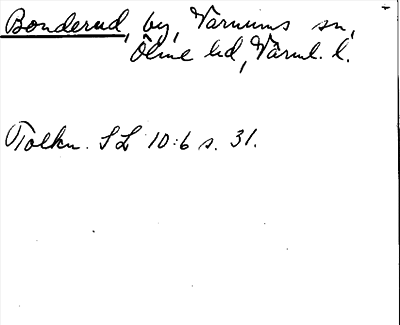 Bonderud, by, Varnums sn,
Ölme hd, Värml. l.
Tolkn. SL 10:6 s. 31.